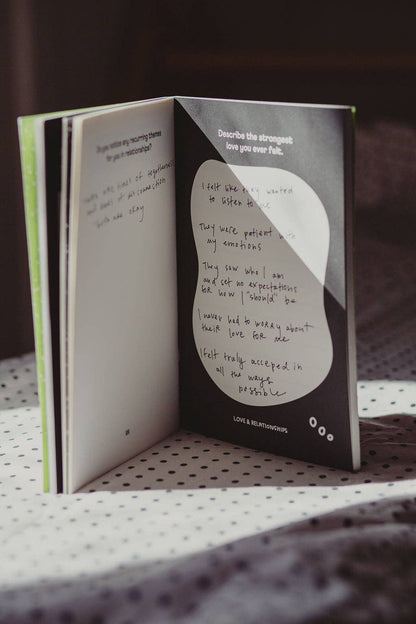 Do you notice any recurring themes
for you in relationships?
times of togetherness
and times of disconnection
both are okay
Describe the strongest
love you ever felt.
I felt like they wanted
to listen to me
They were patient with
my emotions
They saw who I am
and set no expectations
for how I "should" be
I never had to worry about
their love for me
I felt truly acceped in
all the ways
possible
LOVE & RELATIONSHIPS